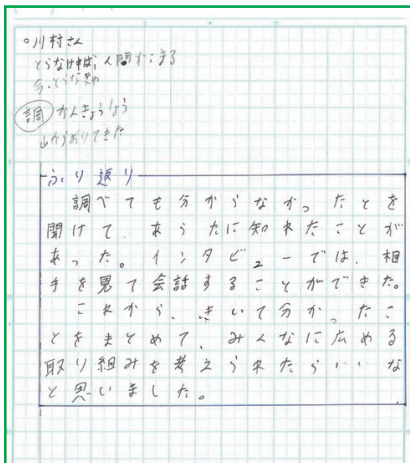 ○川村さん
とらなければ、人間がこまる
今、とらな
調 かんきょう
山からおりてきた
ふり返り
調べても分からなかったとを
聞けて、あらたに知れたことが
あった。インタビューでは、相
手を見て会話することができた。
これから、きいて分かったこ
とをまとめて、みんなに広める
取り組みを考えられたらいいな
と思いました。